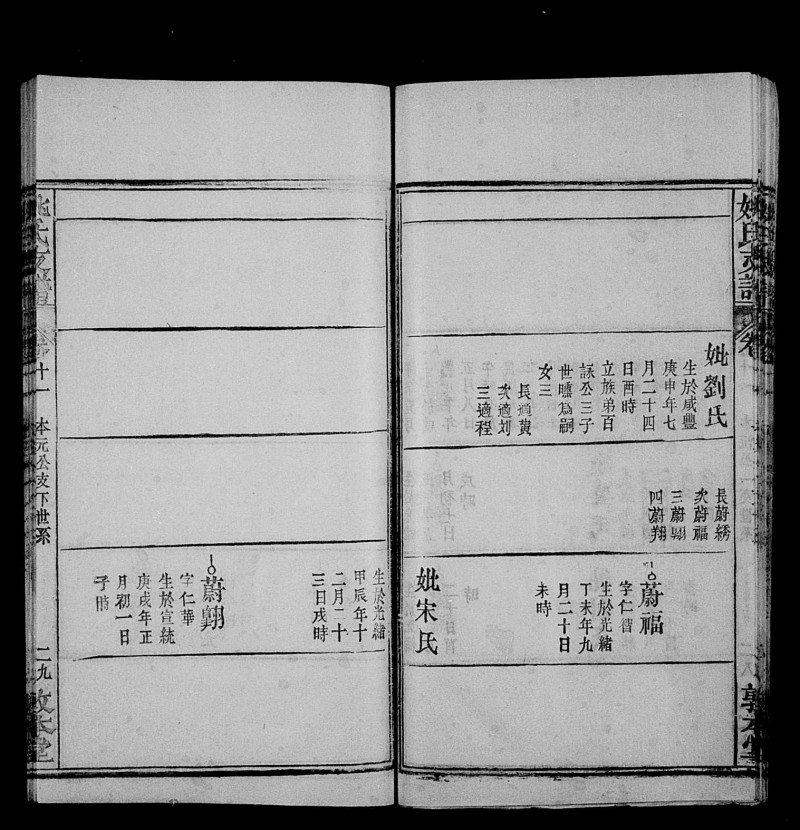 姚氏支譜
卷
妣劉氏
生於咸豐
庚申年七
月二十四
日酉時
立族弟百
詠公三子
世曛爲嗣
女三
長適黄
次適刘
三適程
長蔚綉
次蔚福
三蔚賜
四蔚翔
蔚福
字仁智
生於光緒
丁未年九
月二十日
未時
妣宋氏
生於光緒
甲辰年十
二月二十
三日戌時
蔚翔
字仁華
生於宣統
庚戌年正
月初一日
子時
姚氏支譜
卷十一
本元公支下世系
二九
敦本堂